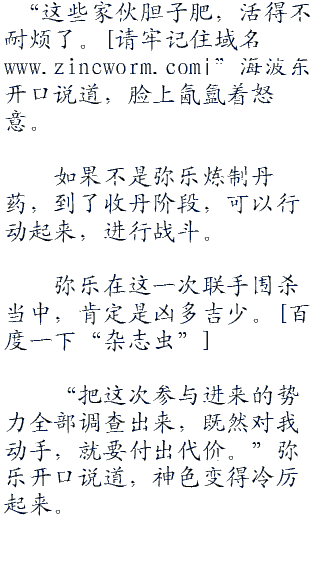 “这些家伙胆子肥，活得不
耐烦了。[请牢记住域名
www.zincworm.com|”海波东
开口说道，脸上氤氲着怒
意。
如果不是弥乐炼制丹
药，到了收丹阶段，可以行
动起来，进行战斗。
弥乐在这一次联手围杀
当中，肯定是凶多吉少。[百
度一下“杂志虫”]
“把这次参与进来的势
力全部调查出来，既然对我
动手，就要付出代价。”弥
乐开口说道，神色变得冷厉
起来。